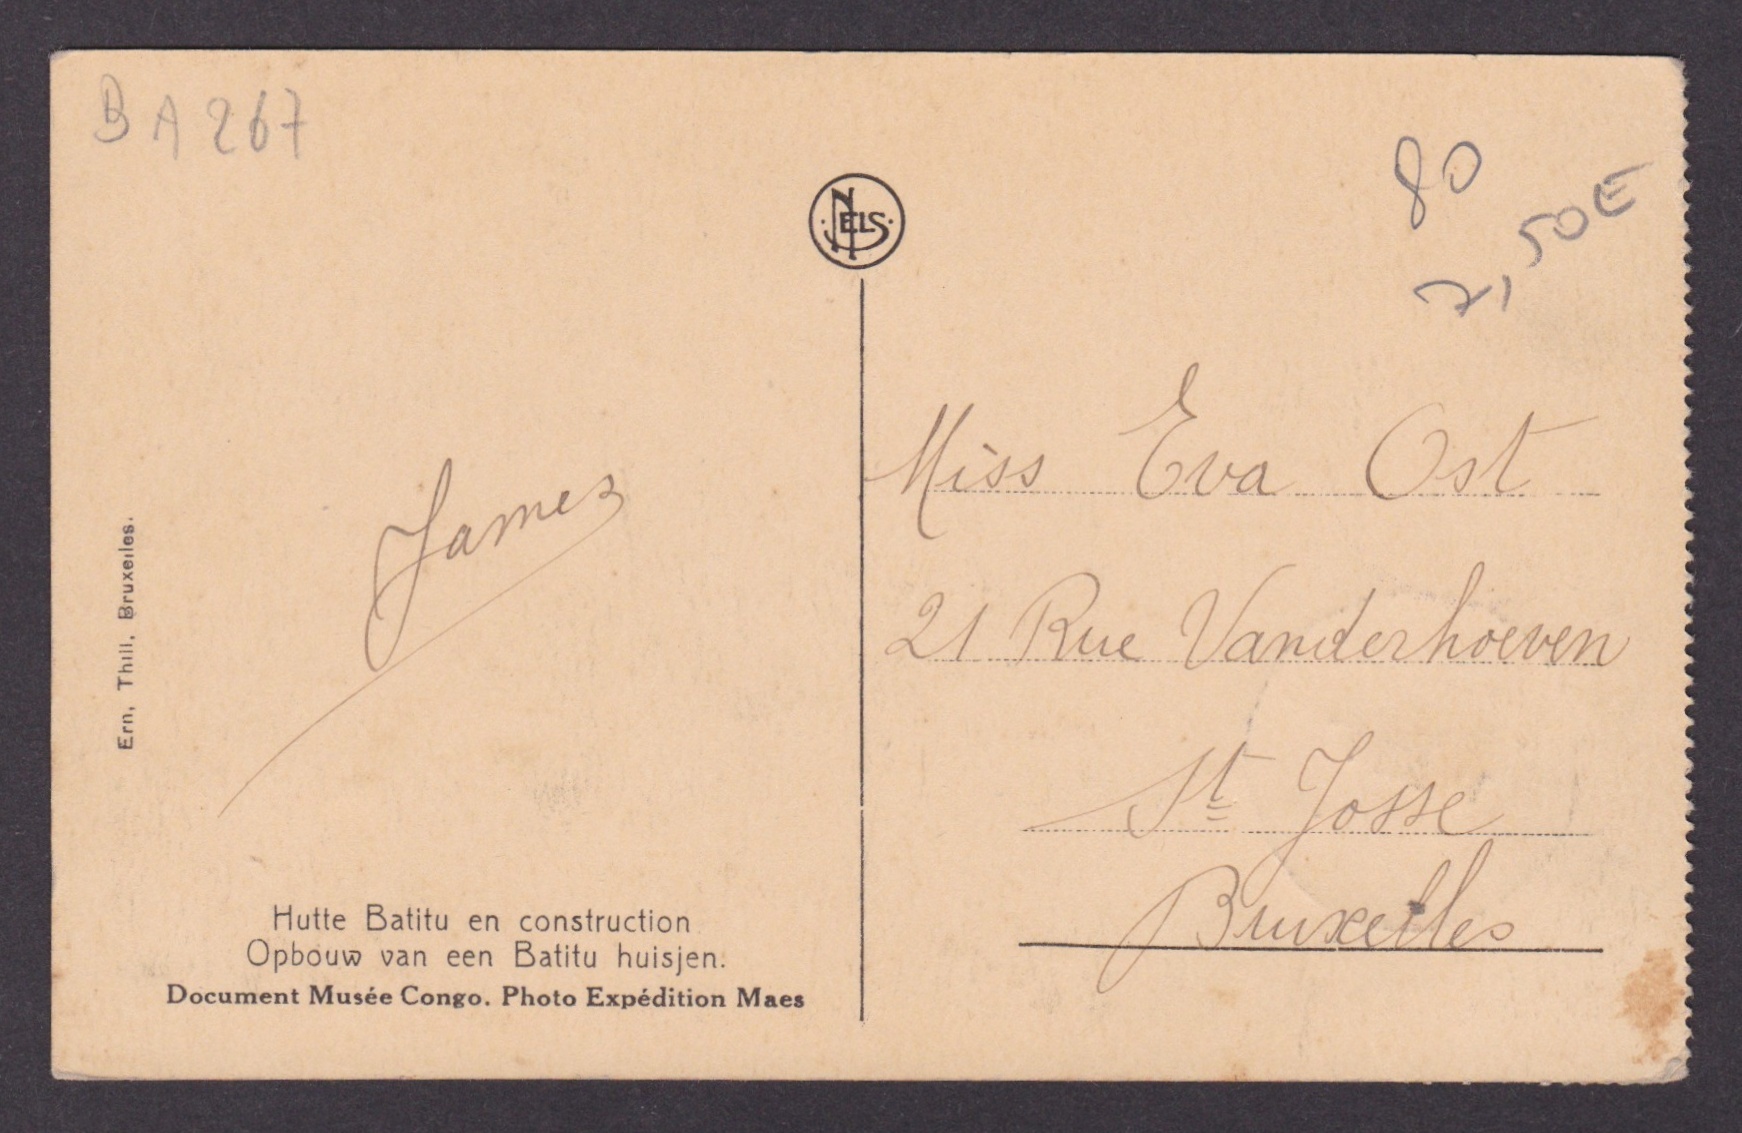 BA267
NELS
80
7,50E
Miss Eva Ost
21 Rue Vanderhoeven
St Josse
Bruxelles
James
Ern. Thill. Bruxelles.
Hutte Batitu en construction
Opbouw van een Batitu huisjen.
Document Musée Congo. Photo Expédition Maes